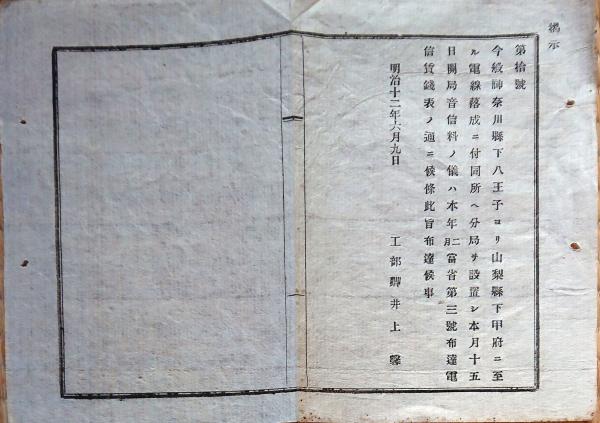 掲示
第拾號
今般神奈川縣下八王子ヨリ山梨縣下甲府ニ至
ル電線落成ニ付同所ヘ分局ヲ設置シ本月十五
日開局音信料ノ儀ハ本年二月當省第三號布達電
信賃錢表ノ通ニ候條此旨布達候事
明治十二年六月九日
工部卿井上馨